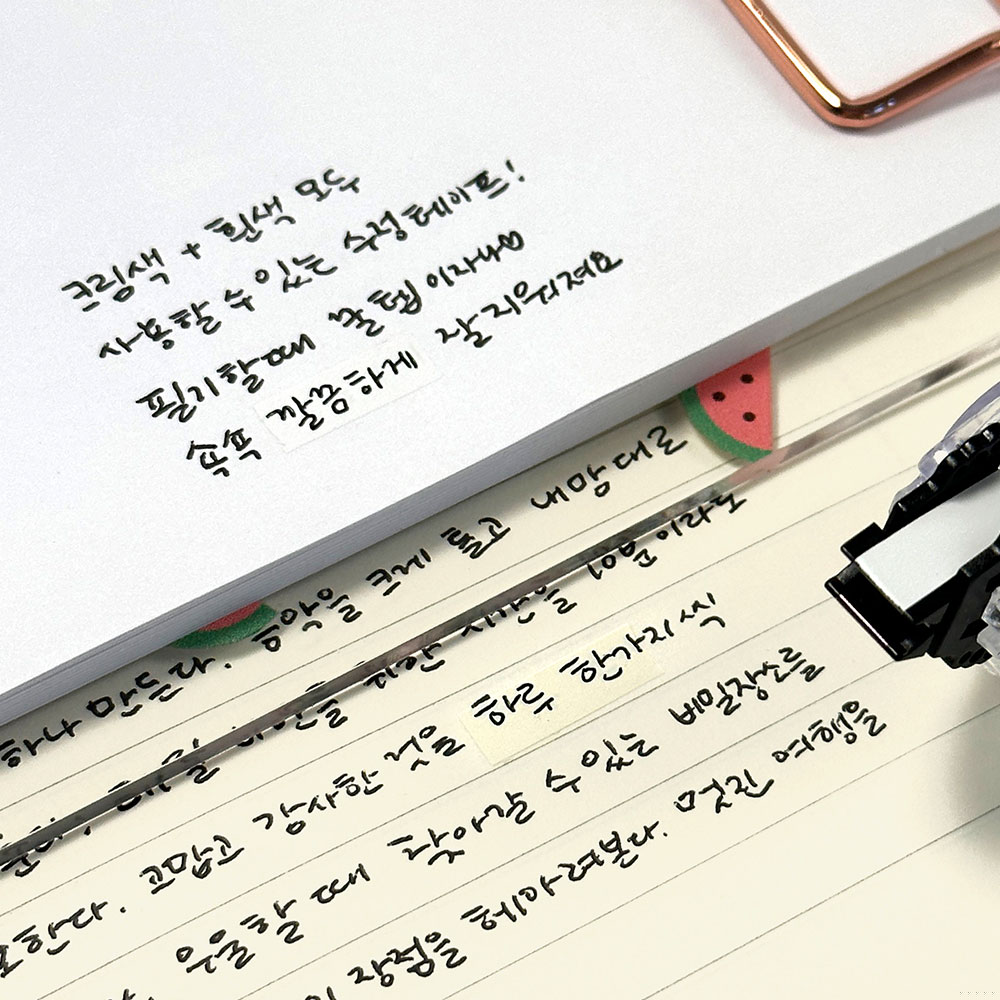 크림색 + 흰색 모두
사용할 수 있는 수정테이프!
필기할때 꿀템이자나♡
슥슥 깔끔하게 잘 지워져요
하나 만든다. 음악을 크게 틀고 내맘대로
시간을 10분이라도
한다. 고맙고 감사한 것을 하루 한가지씩
우울할 때 찾아갈 수 있는 비밀장소를
장점을 헤아려본다. 멋진 여행을